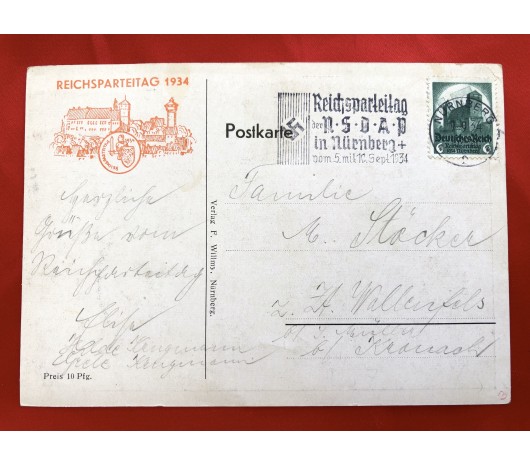 REICHSPARTEITAG 1934
Postkarte
Reichsparteitag
der N·S·D·A·P
in Nürnberg+
vom 5. mit 10. Sept. 1934
NÜRNBERG
Deutsches Reich
Herzliche
Grüße vom
Reichsparteitag
Elise
Preis 10 Pfg.
Verlag F. Willms, Nürnberg.
Familie
M. Stöcker
z. Zt. Wallenfels
b/ Kronach